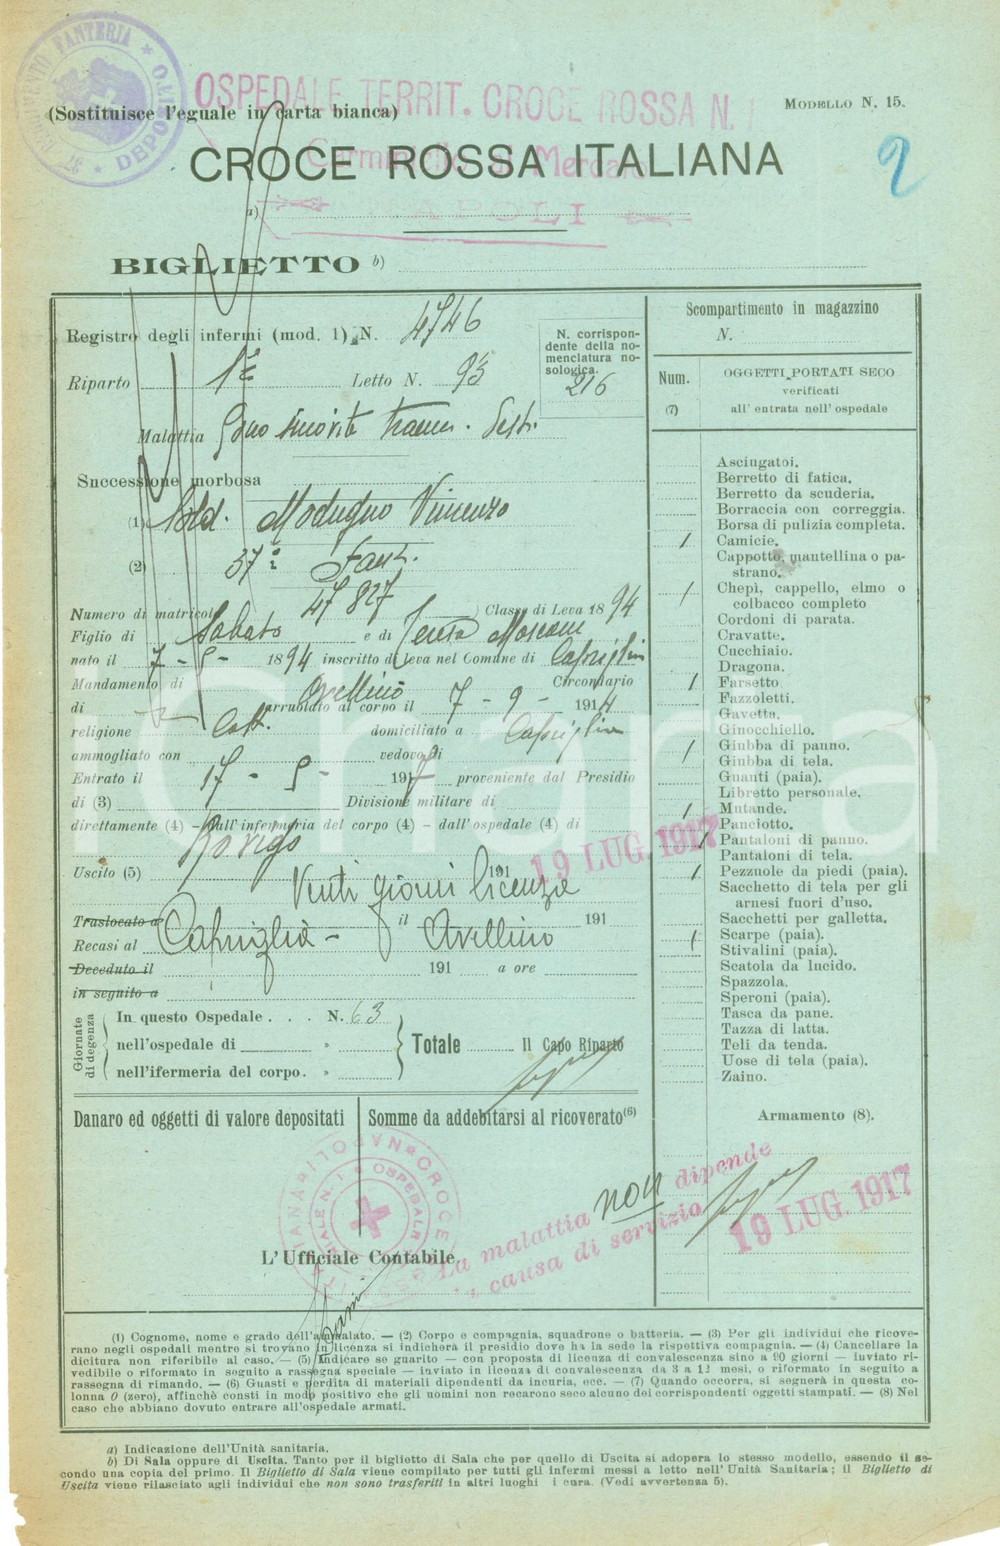 37° REGGIMENTO FANTERIA * DEPOSITO *
OSPEDALE TERRIT. CROCE ROSSA N. 1
(Sostituisce l'eguale in carta bianca)
MODELLO N. 15.
2
CROCE ROSSA ITALIANA
Mercato
a)
NAPOLI
BIGLIETTO b)
Registro degli infermi (mod. 1) N. 4746
N. corrispondente della nomenclatura nosologica.
216
Riparto 1° Letto N. 93
Malattia Gono sinovite traum.
Successione morbosa
(1) Sold. Modugno Vincenzo
(2) 37° Fant.
Numero di matricola 47827 Classe di Leva 1894
Figlio di Sabato e di
nato il 7 - 5 - 1894 inscritto di leva nel Comune di Capriglia
Mandamento di Avellino Circondario
di arruolato al corpo il 7 - 9 - 1914
religione Catt. domiciliato a Capriglia
ammogliato con vedovo di
Entrato il 17 - 5 - 1917 proveniente dal Presidio
di (3) Divisione militare di
direttamente (4) - dall'infermeria del corpo (4) - dall'ospedale (4) di
Rovigo
Uscito (5) 191 19 LUG. 1917
Venti giorni licenza
Traslocato a il 191
Recasi al Capriglia - Avellino
Deceduto il 191 a ore
in seguito a
Giornate di degenza
In questo Ospedale . . . N. 63
nell'ospedale di »
nell'ifermeria del corpo. »
Totale
Il Capo Riparto
Danaro ed oggetti di valore depositati
Somme da addebitarsi al ricoverato (6)
L'Ufficiale Contabile
La malattia non dipende
da causa di servizio
19 LUG. 1917
Scompartimento in magazzino
N.
Num.
(7)
OGGETTI PORTATI SECO
verificati
all'entrata nell'ospedale
Asciugatoi.
Berretto di fatica.
Berretto da scuderia.
Borraccia con correggia.
Borsa di pulizia completa.
1 Camicie.
Cappotto, mantellina o pastrano.
1 Chepì, cappello, elmo o
colbacco completo
Cordoni di parata.
Cravatte.
Cucchiaio.
Dragona.
1 Farsetto
Fazzoletti.
Gavetta.
Ginocchiello.
1 Giubba di panno.
Giubba di tela.
Guanti (paia).
Libretto personale.
1 Mutande.
Panciotto.
1 Pantaloni di panno.
Pantaloni di tela.
1 Pezzuole da piedi (paia).
Sacchetto di tela per gli
arnesi fuori d'uso.
Sacchetti per galletta.
1 Scarpe (paia).
Stivalini (paia).
Scatola da lucido.
Spazzola.
Speroni (paia).
Tasca da pane.
Tazza di latta.
Teli da tenda.
Uose di tela (paia).
Zaino.
Armamento (8).
(1) Cognome, nome e grado dell'ammalato. — (2) Corpo e compagnia, squadrone o batteria. — (3) Per gli individui che ricove-
rano negli ospedali mentre si trovano in licenza si indicherà il presidio dove ha la sede la rispettiva compagnia. — (4) Cancellare la
dicitura non riferibile al caso. — (5) Indicare se guarito — con proposta di licenza di convalescenza sino a 90 giorni — inviato ri-
vedibile o riformato in seguito a rassegna speciale — inviato in licenza di convalescenza da 3 a 12 mesi, o riformato in seguito a
rassegna di rimando. — (6) Guasti e perdita di materiali dipendenti da incuria, ecc. — (7) Quando occorra, si segnerà in questa co-
lonna 0 (zero), affinchè consti in modo positivo che gli uomini non recarono seco alcuno dei corrispondenti oggetti stampati. — (8) Nel
caso che abbiano dovuto entrare all'ospedale armati.
a) Indicazione dell'Unità sanitaria.
b) Di Sala oppure di Uscita. Tanto per il biglietto di Sala che per quello di Uscita si adopera lo stesso modello, essendo il se-
condo una copia del primo. Il Biglietto di Sala viene compilato per tutti gli infermi messi a letto nell'Unità Sanitaria; il Biglietto di
Uscita viene rilasciato agli individui che non sono trasferiti in altri luoghi i cura. (Vedi avvertenza 5).